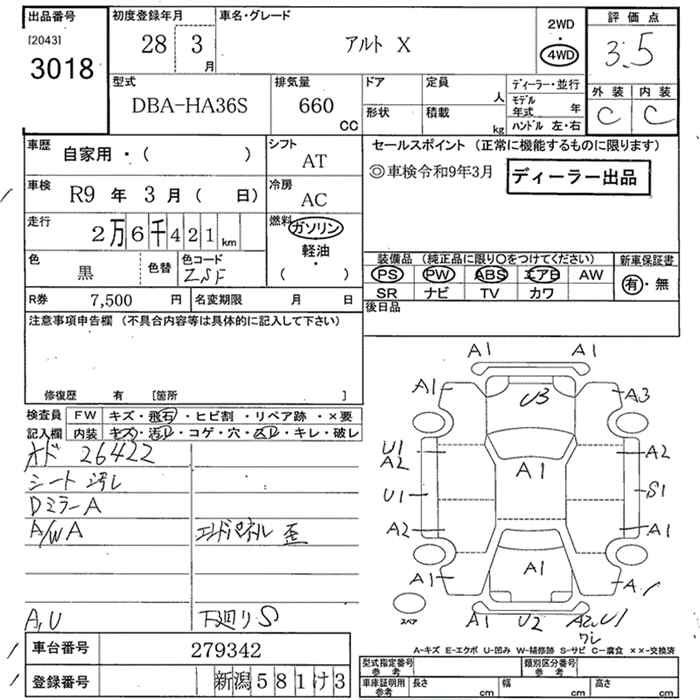 出品番号
[2043]
3018
初度登録年月
28 3
月
車名・グレード
アルト X
2WD
・
4WD
評価点
3.5
外装 内装
C C
型式
DBA-HA36S
排気量
660
CC
ドア
形状
定員
人
積載
kg
ディーラー・並行
モデル年式 年
ハンドル 左・右
車歴
自家用・( )
シフト
AT
車検
R9 年 3 月 ( 日)
冷房
AC
走行
2万6千421 km
燃料
ガソリン
軽油・
( )
色
黒
色替
色コード
ZSF
R券 7,500 円
名変期限 月 日
セールスポイント (正常に機能するものに限ります)
◎車検令和9年3月
ディーラー出品
装備品 (純正品に限り〇をつけてください)
新車保証書
PS PW ABS エアB AW
有・無
SR ナビ TV カワ
後日品
注意事項申告欄 (不具合内容等は具体的に記入して下さい)
修復歴 有 [箇所 ]
検査員
記入欄
FW キズ・飛石・ヒビ割・リペア跡・×要
内装 キズ・汚レ・コゲ・穴・スレ・キレ・破レ
オド 26422
シート汚レ
DミラーA
A/W A
エンドパネル 歪
A,U
下廻りS
A1 A1
A1 U3 A3
U1
A2
A1
A2
U1 S1
A2 A1
A1 A1 A
スペア
A1 U2 A2 U1
ワレ
A-キズ E-エクボ U-凹み W-補修跡 S-サビ C-腐食 ××-交換済
車台番号 279342
登録番号 新潟581け3
型式指定番号
参考
類別区分番号
参考
車庫証明用
参考
長さ cm
幅 cm
高さ cm